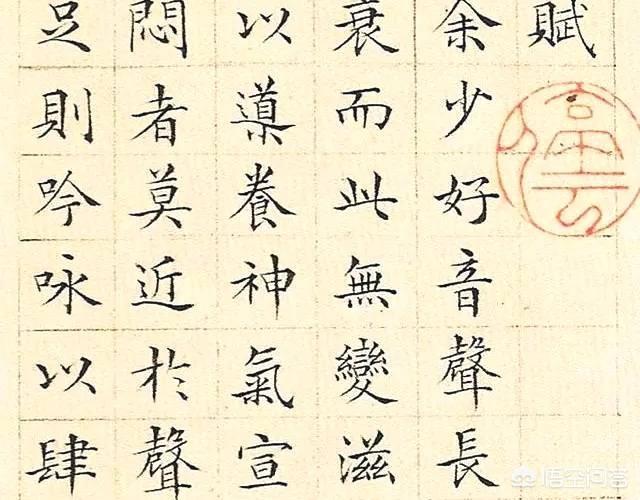 賦
余少好音聲長
衰而此無變滋
以導養神氣宣
悶者莫近於聲
足則吟咏以肆
悟空问答